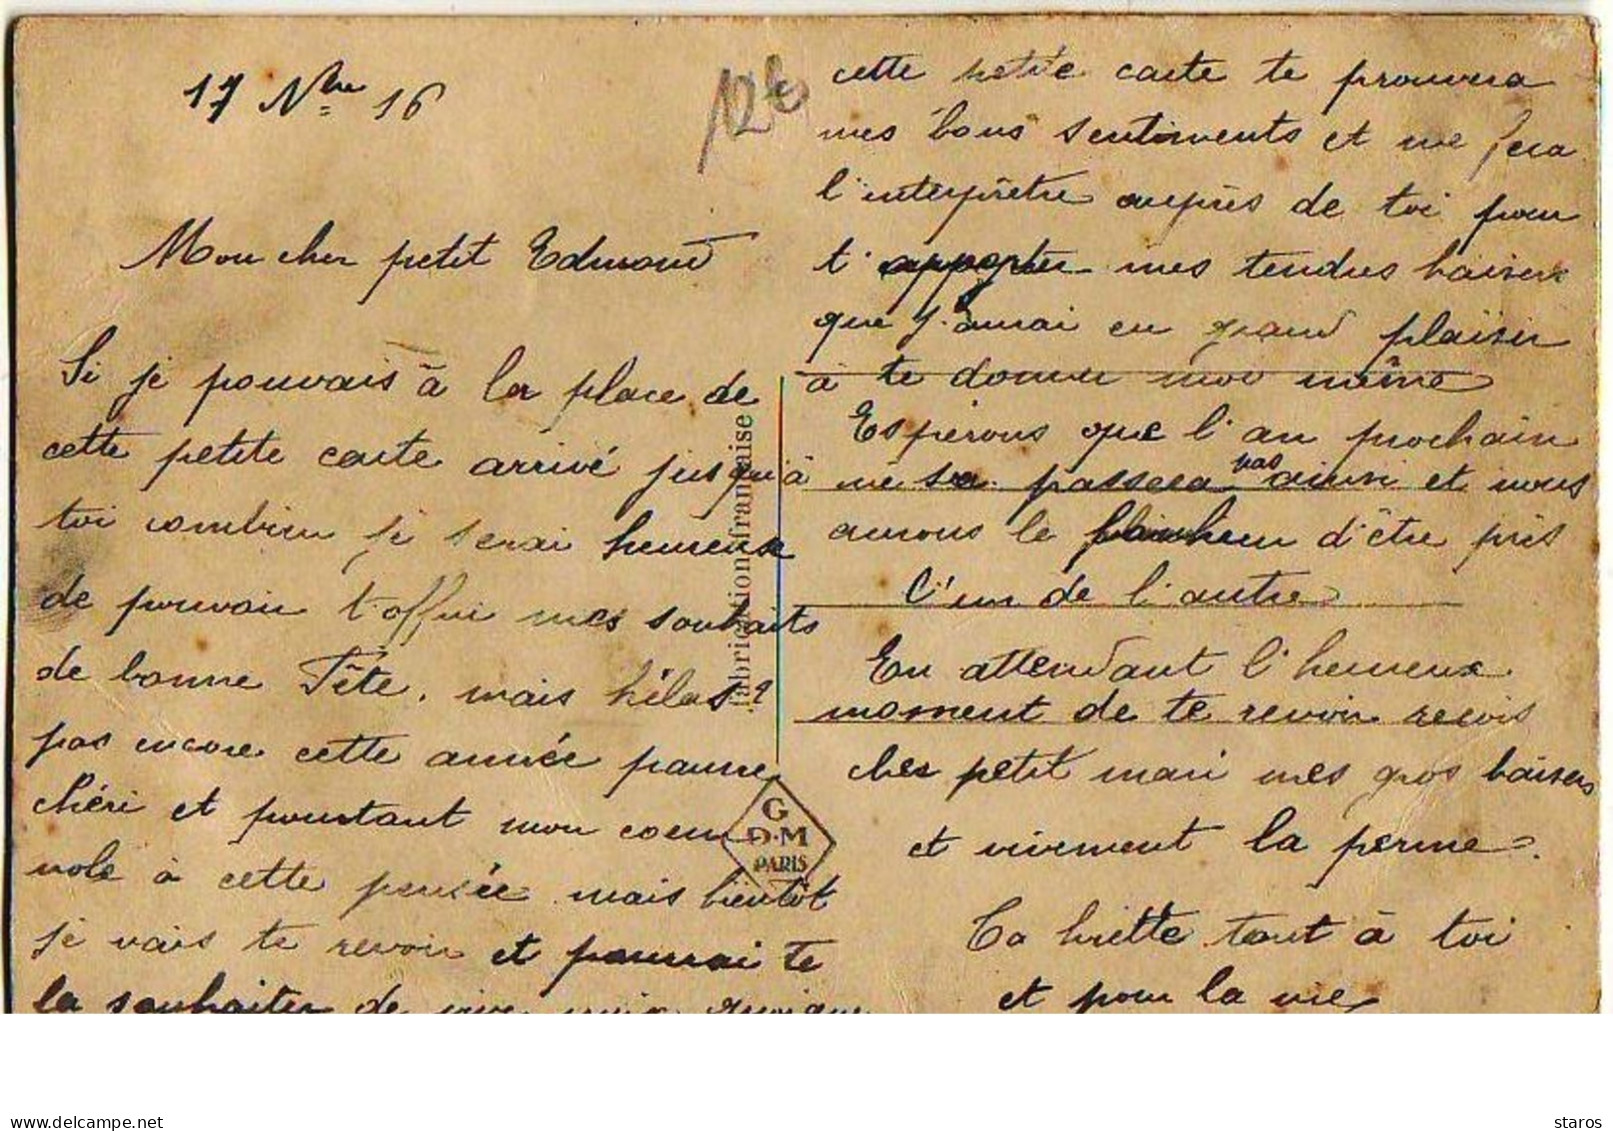 17 Nbre 16
Mon cher petit Edmond
Si je pouvais à la place de
cette petite carte arrivé jusqu'à
toi combien je serai heureuse
de pouvoir t'offrir mes souhaits
de bonne Fête, mais hélas?
pas encore cette année pauvre
chéri et pourtant mon coeur
vole à cette pensée mais bientôt
je vais te revoir et pourrai te
la souhaiter de vive voix quoique
cette petite carte te prouvera
mes bons sentiments et me sera
l'interprêtre auprès de toi pour
t'apporter mes tendres baisers
que j'aurai eu grand plaisir
à te donner moi même
Espérons que l'an prochain
ne se passera pas ainsi et nous
aurons le bonheur d'être près
l'un de l'autre
En attendant l'heureux
moment de te revoir reçois
cher petit mari mes gros baisers
et vivement la perme.
Ta briette tout à toi
et pour la vie
Fabrication française
G
D.M
PARIS
delcampe.net
staros